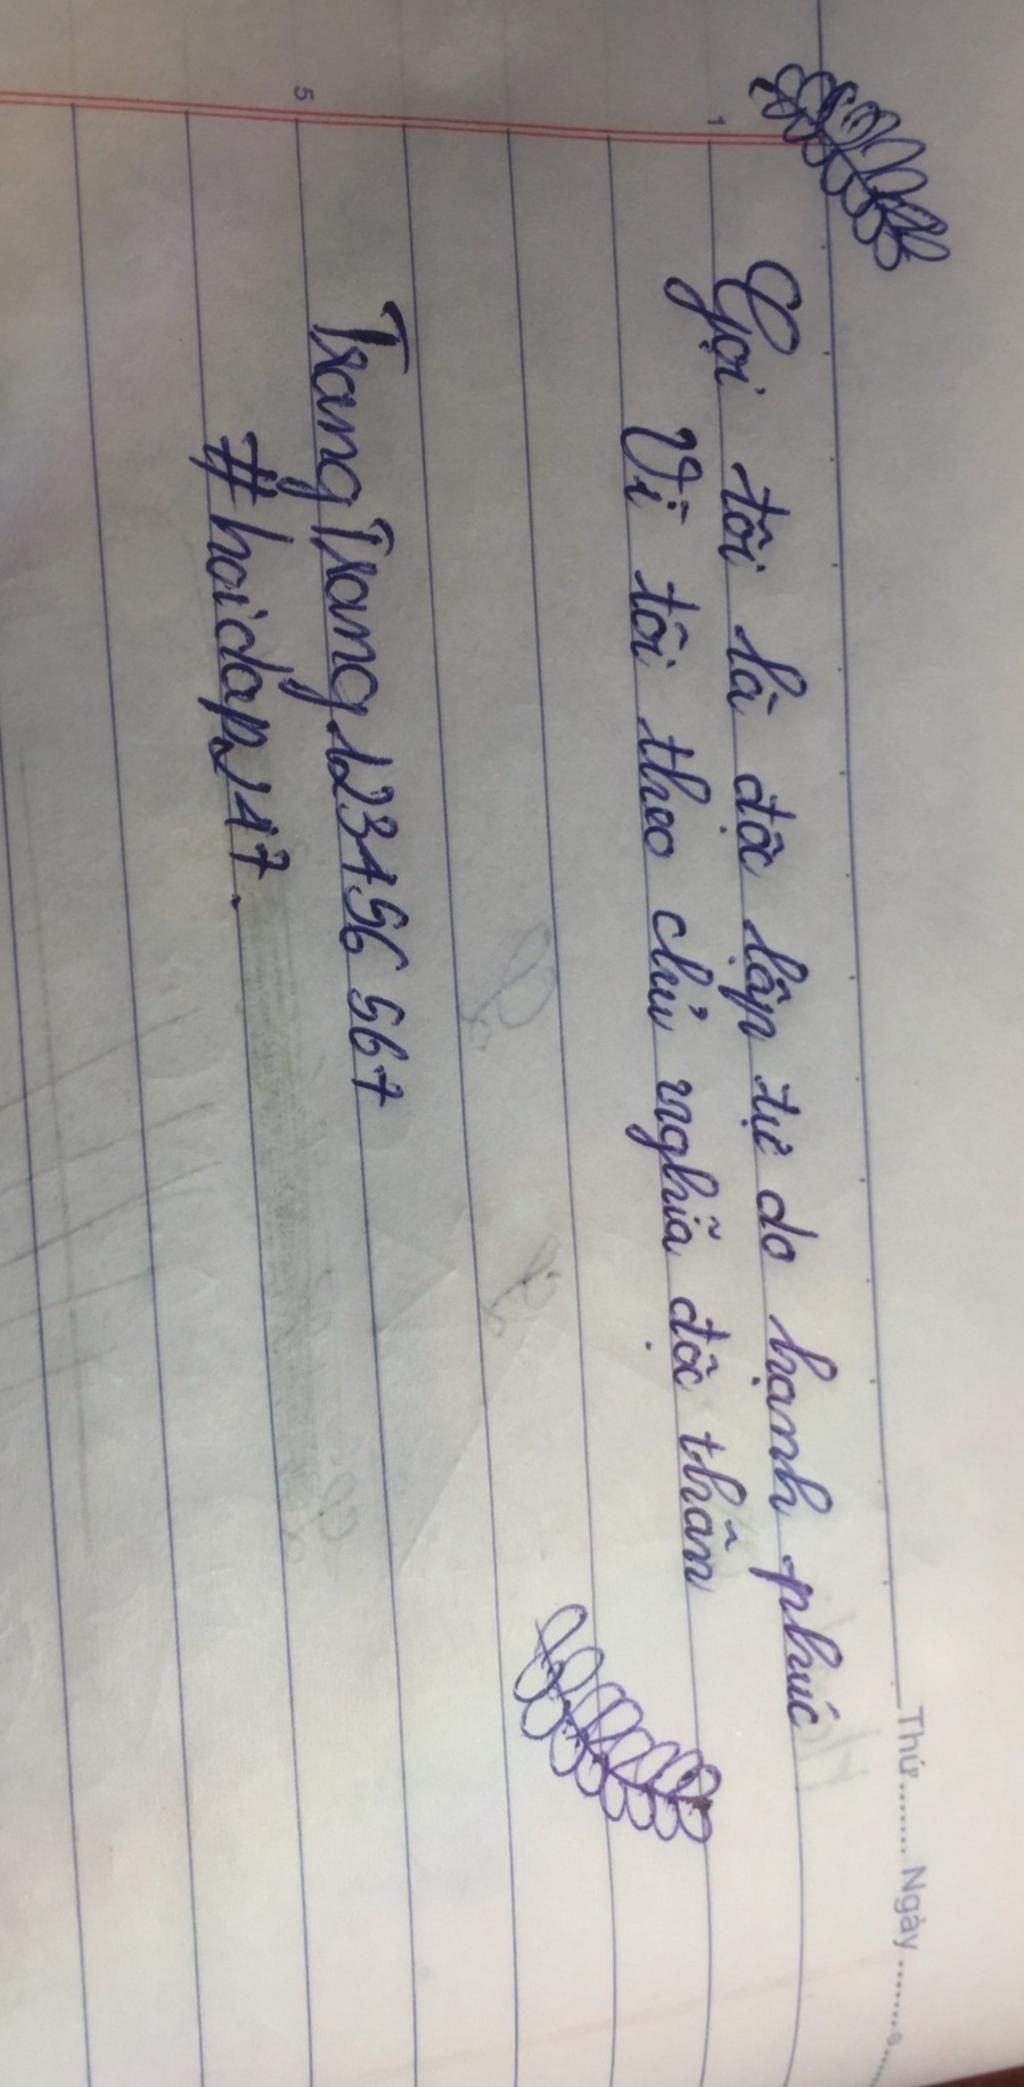 Thứ......... Ngày .........
Gọi tôi là độc lập tự do hạnh phúc
Vì tôi theo chủ nghĩa độc thân
1
TrangTrang123456 567
5
#hoidap247.